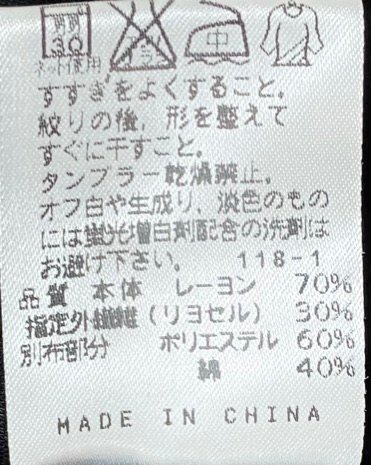 30
エンソ
中
ネット使用
すすぎをよくすること。
絞りの後、形を整えて
すぐに干すこと。
タンブラー乾燥禁止。
オフ白や生成り、淡色のもの
には蛍光増白剤配合の洗剤は
お避け下さい。 118-1
品質 本体 レーヨン 70%
指定外繊維(リヨセル) 30%
別布部分 ポリエステル 60%
綿 40%
MADE IN CHINA